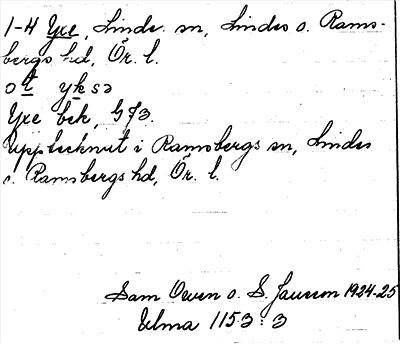 1-4 Yxe, Linde sn, Lindes o. Rams-
bergs hd, Ör. l.
yksə
Yxe bek, GJ3.
Upptecknat i Ramsbergs sn, Lindes
o. Ramsbergs hd, Ör. l.
Sam Owen o. S. Jansson 1924-25
Ulma 1153:3